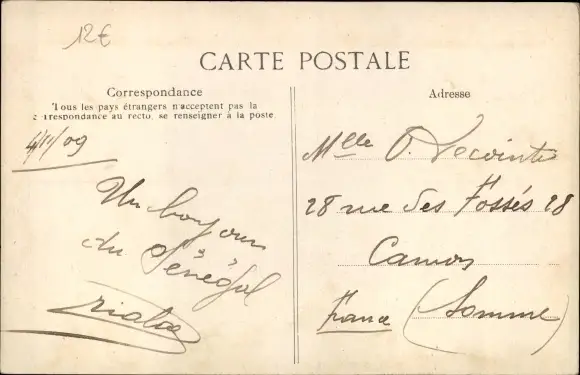 12€
CARTE POSTALE
Correspondance
Tous les pays étrangers n'acceptent pas la
correspondance au recto, se renseigner à la poste.
Adresse
4/11/09
Un bonjour
du Sénégal
Mlle O. Lecointe
28 rue des Fossés 28
Camon
France (Somme)